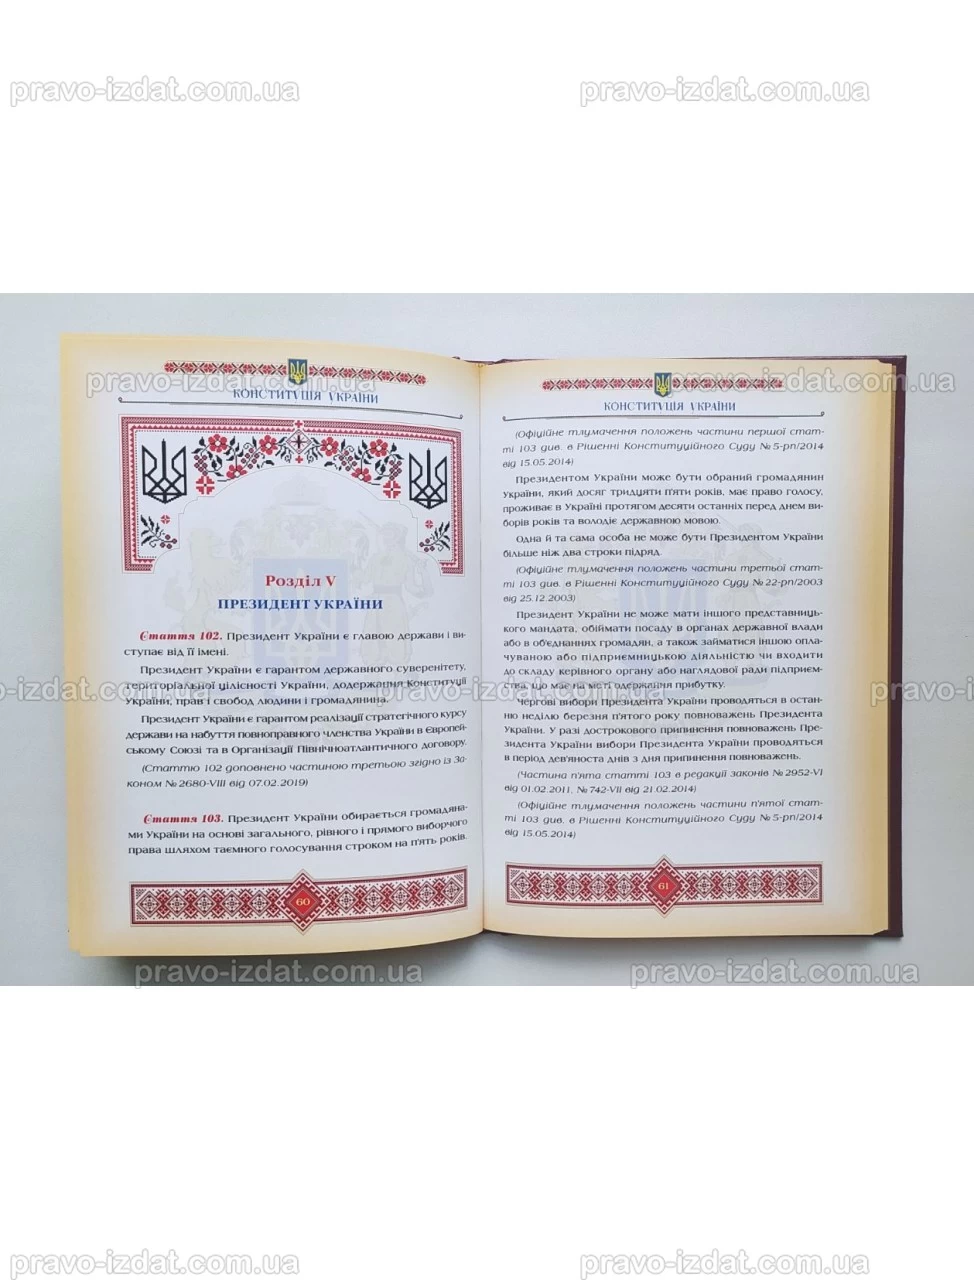 pravo-izdat.com.ua
pravo-izdat.com.ua
КОНСТИТУЦІЯ УКРАЇНИ
Розділ V
ПРЕЗИДЕНТ УКРАЇНИ
Стаття 102. Президент України є главою держави і ви-
ступає від її імені.
Президент України є гарантом державного суверенітету,
територіальної цілісності України, додержання Конституції
України, прав і свобод людини і громадянина.
Президент України є гарантом реалізації стратегічного курсу
держави на набуття повноправного членства України в Європей-
ському Союзі та в Організації Північноатлантичного договору.
(Статтю 102 доповнено частиною третьою згідно із За-
коном № 2680-VIII від 07.02.2019)
Стаття 103. Президент України обирається громадяна-
ми України на основі загального, рівного і прямого виборчого
права шляхом таємного голосування строком на п'ять років.
60
КОНСТИТУЦІЯ УКРАЇНИ
(Офіційне тлумачення положень частини першої стат-
ті 103 див. в Рішенні Конституційного Суду № 5-рп/2014
від 15.05.2014)
Президентом України може бути обраний громадянин
України, який досяг тридцяти п'яти років, має право голосу,
проживає в Україні протягом десяти останніх перед днем ви-
борів років та володіє державною мовою.
Одна й та сама особа не може бути Президентом України
більше ніж два строки підряд.
(Офіційне тлумачення положень частини третьої стат-
ті 103 див. в Рішенні Конституційного Суду № 22-рп/2003
від 25.12.2003)
Президент України не може мати іншого представниць-
кого мандата, обіймати посаду в органах державної влади
або в об'єднаннях громадян, а також займатися іншою опла-
чуваною або підприємницькою діяльністю чи входити
до складу керівного органу або наглядової ради підприєм-
ства, що має на меті одержання прибутку.
Чергові вибори Президента України проводяться в остан-
ню неділю березня п'ятого року повноважень Президента
України. У разі дострокового припинення повноважень Пре-
зидента України вибори Президента України проводяться
в період дев'яноста днів з дня припинення повноважень.
(Частина п'ята статті 103 в редакції законів № 2952-VI
від 01.02.2011, № 742-VII від 21.02.2014)
(Офіційне тлумачення положень частини п'ятої стат-
ті 103 див. в Рішенні Конституційного Суду № 5-рп/2014
від 15.05.2014)
61
pravo-izdat.com.ua
pravo-izdat.com.ua
pravo-izdat.com.ua
pravo-izdat.com.ua
pravo-izdat.com.ua
pravo-izdat.com.ua
pravo-izdat.com.ua
pravo-izdat.com.ua
pravo-izdat.com.ua
pravo-izdat.com.ua